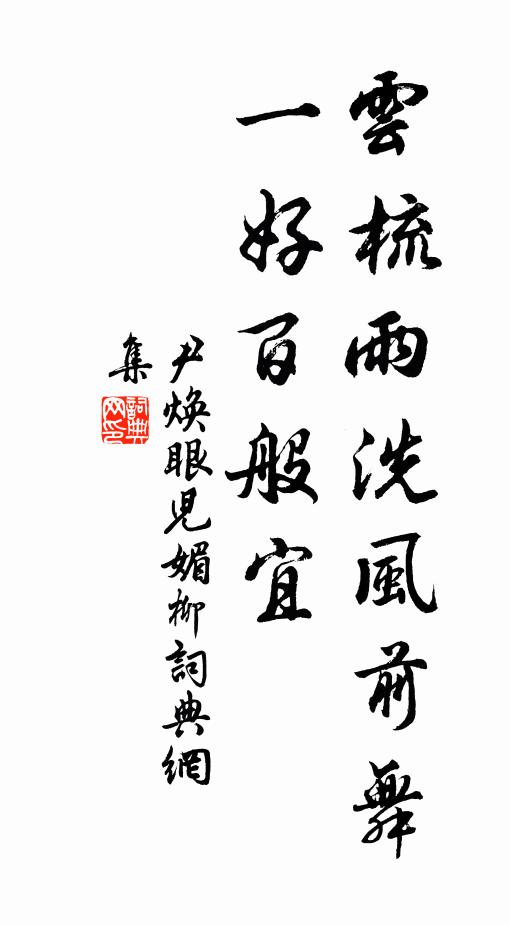 雲梳雨洗風前舞
一好百般宜
尹煥眼兒媚柳詞典網
集
詞典網印